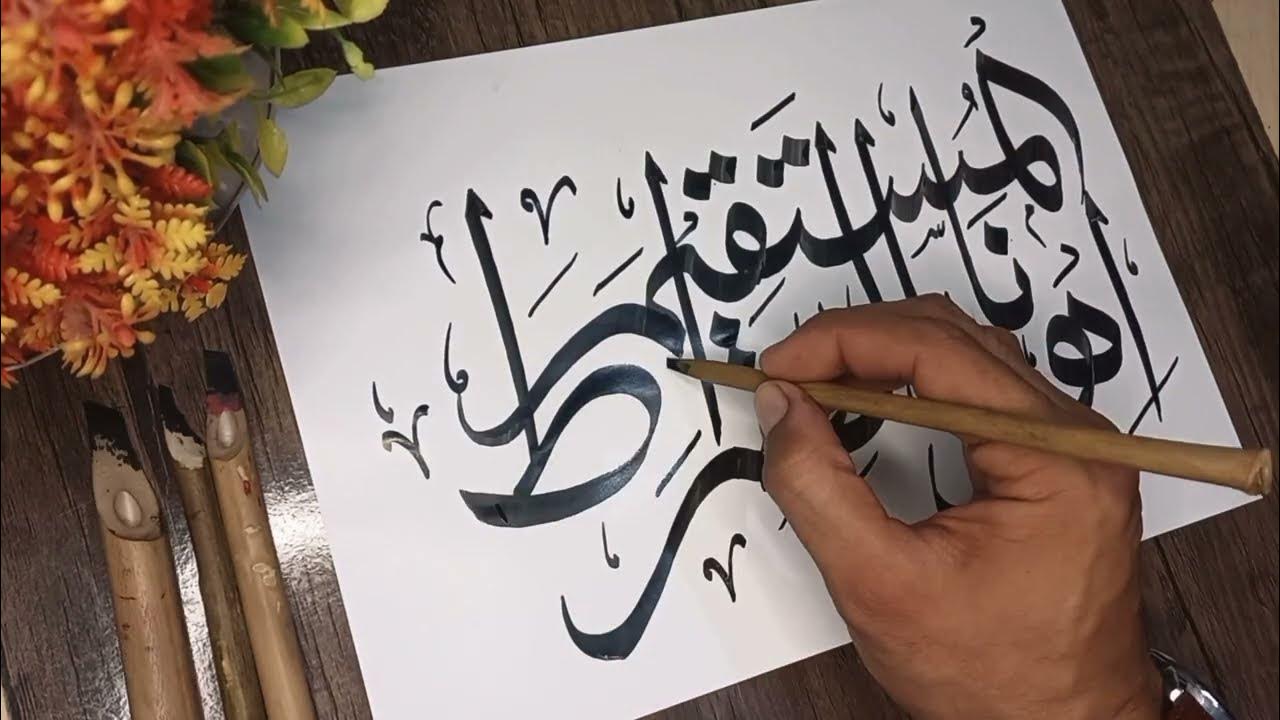 اهدنا الصراط المستقيم